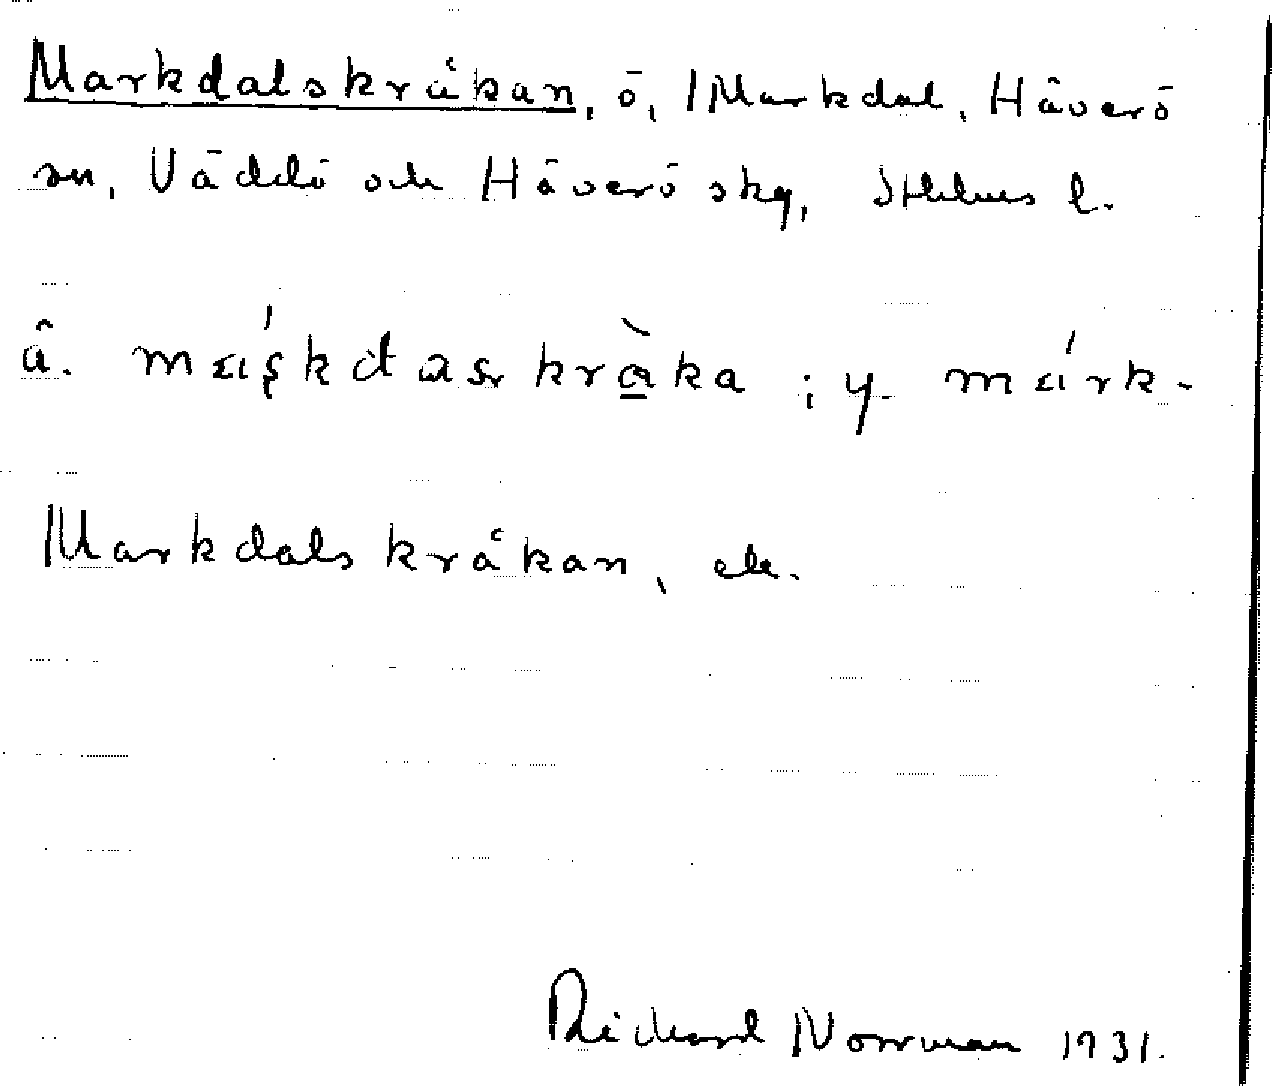 Markdalskråkan, ö, i Markdal, Häverö
sn, Väddö och Häverö skg, Sthlms l.
ä. ; y. márk-
Markdals kråkan, ek.
Richard Norrman 1931.